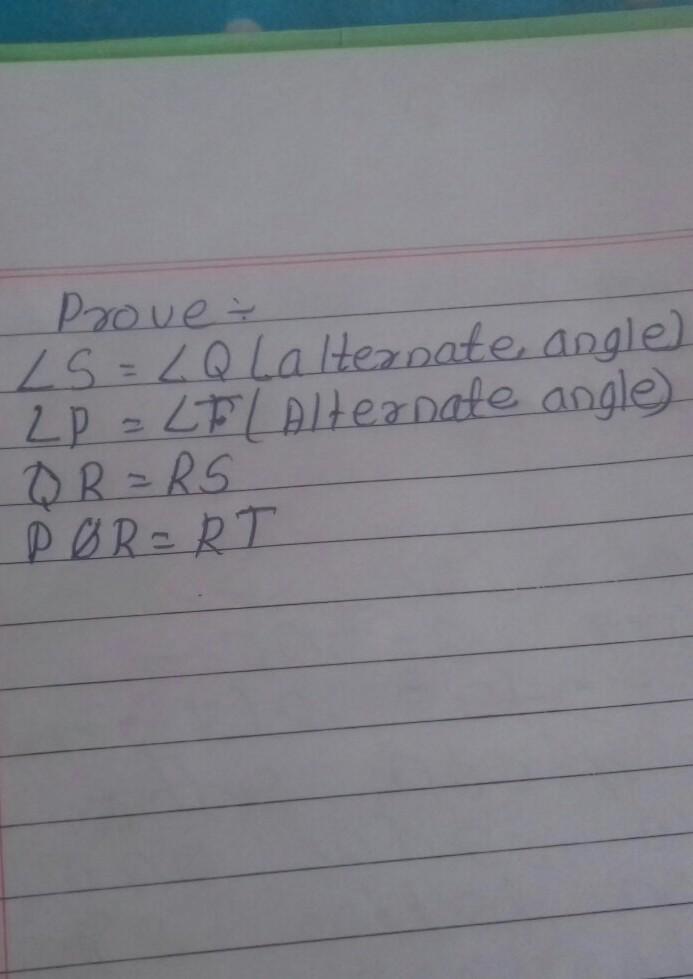 Prove ÷
∠S = ∠Q (alternate angle)
∠P = ∠T (Alternate angle)
QR = RS
PR = RT